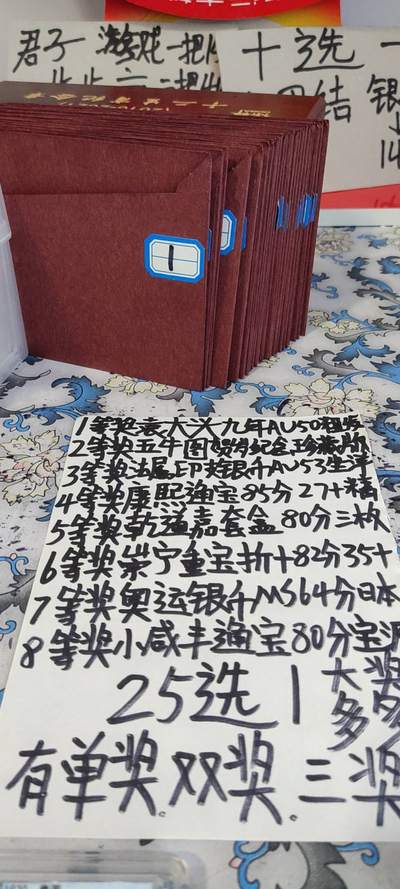 君子 游戏一把
十选一
四结
银
14
十二生肖纪念章
1
1等奖袁大头九年AU50粗发
2等奖五牛图贺岁纪念珍藏版
3等奖法属印支银币AU53坐洋
4等奖康熙通宝85分27+精
5等奖乾道嘉套金80分三枚
6等奖崇宁重宝折十82分35+
7等奖奥运银币MS64分日本
8等奖小咸丰通宝80分宝源
25选1大奖多多
有单奖.双奖.三奖